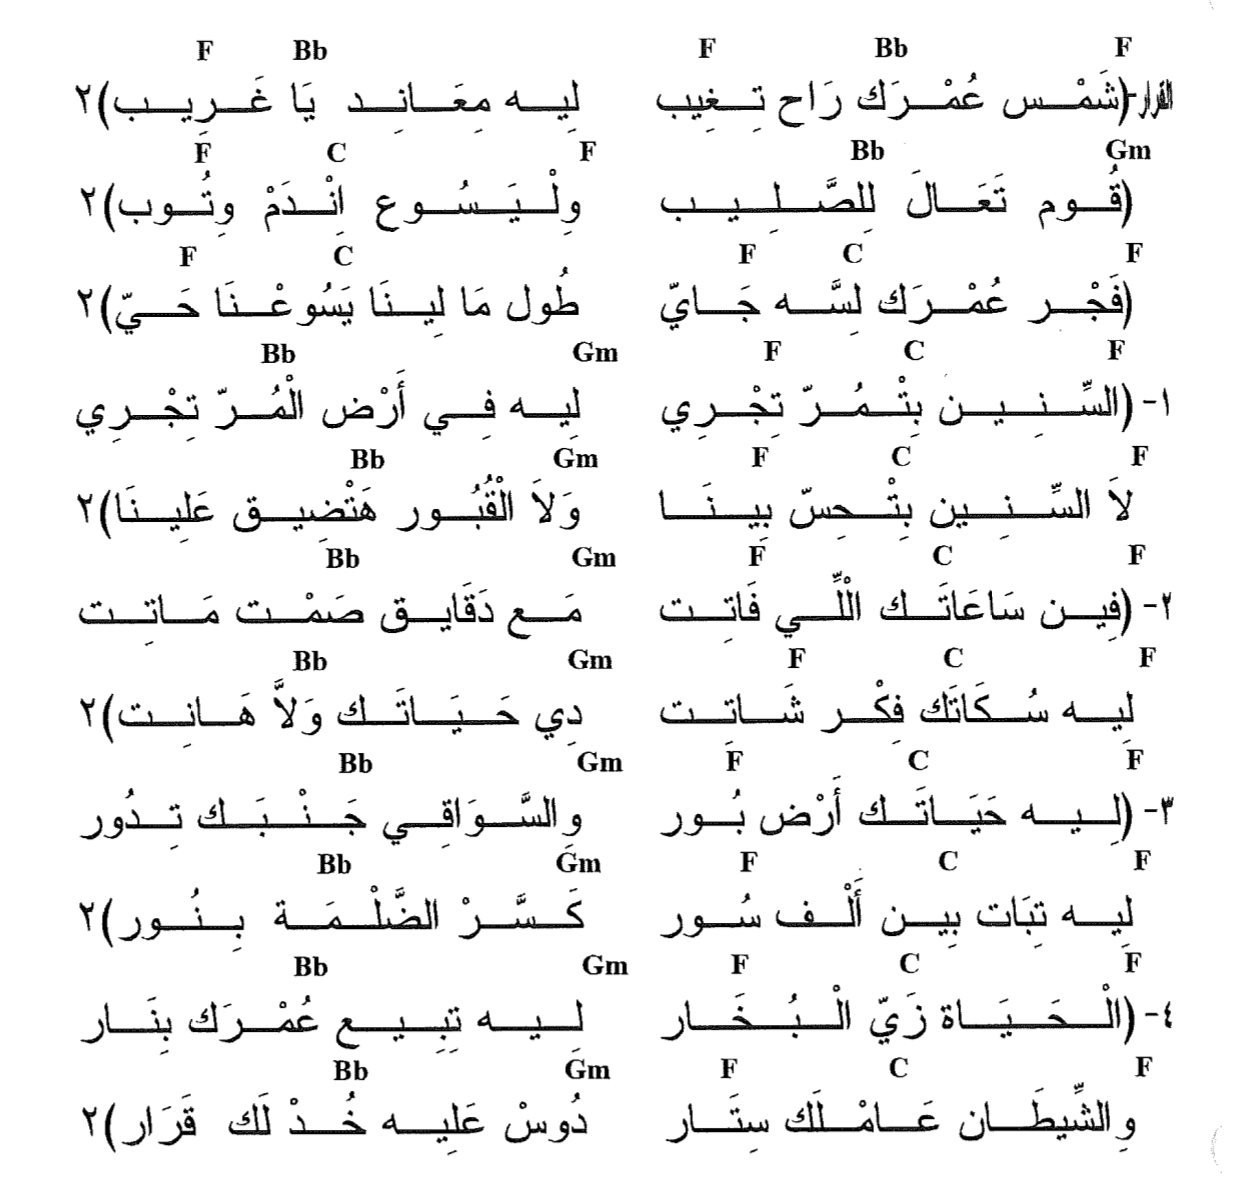 F Bb F F Bb F
القرار-(شَمْس عُمْرَك رَاح تِغِيب لِيه مِعَانِد يَا غَرِيب)٢
Gm Bb F C F
(قُوم تَعَالَ لِلصَّلِيب ولْيَسُوع اِنْدَمْ وِتُوب)٢
F C F C F
(فَجْر عُمْرَك لِسَّه جَايّ طُول مَا لِينَا يَسُوعْنَا حَيّ)٢
F C F Gm Bb
١- (السِّنِين بِتْمُرّ تِجْرِي لِيه فِي أَرْض الْمُرّ تِجْرِي
F C F Gm Bb
لاَ السِّنِين بِتْحِسّ بِينَا وَلاَ الْقُبُور هَتْضِيق عَلِينَا)٢
F C F Gm Bb
٢- (فِين سَاعَاتَك الْلِّي فَاتِت مَع دَقَايِق صَمْت مَاتِت
F C F Gm Bb
لِيه سُكَاتَك فِكْر شَاتِت دِي حَيَاتَك وَلاَّ هَانِت)٢
F C F Gm Bb
٣- (لِيه حَيَاتَك أَرْض بُور والسَّوَاقِي جَنْبَك تِدُور
F C F Gm Bb
لِيه تِبَات بِين أَلْف سُور كَسَّرْ الضَّلْمَة بِنُور)٢
F C F Gm Bb
٤- (الْحَيَاة زَيّ الْبُخَار لِيه تِبِيع عُمْرَك بِنَار
F C F Gm Bb
والشِّيطَان عَامْلَك سِتَار دُوسْ عَلِيه خُدْ لَك قَرَار)٢